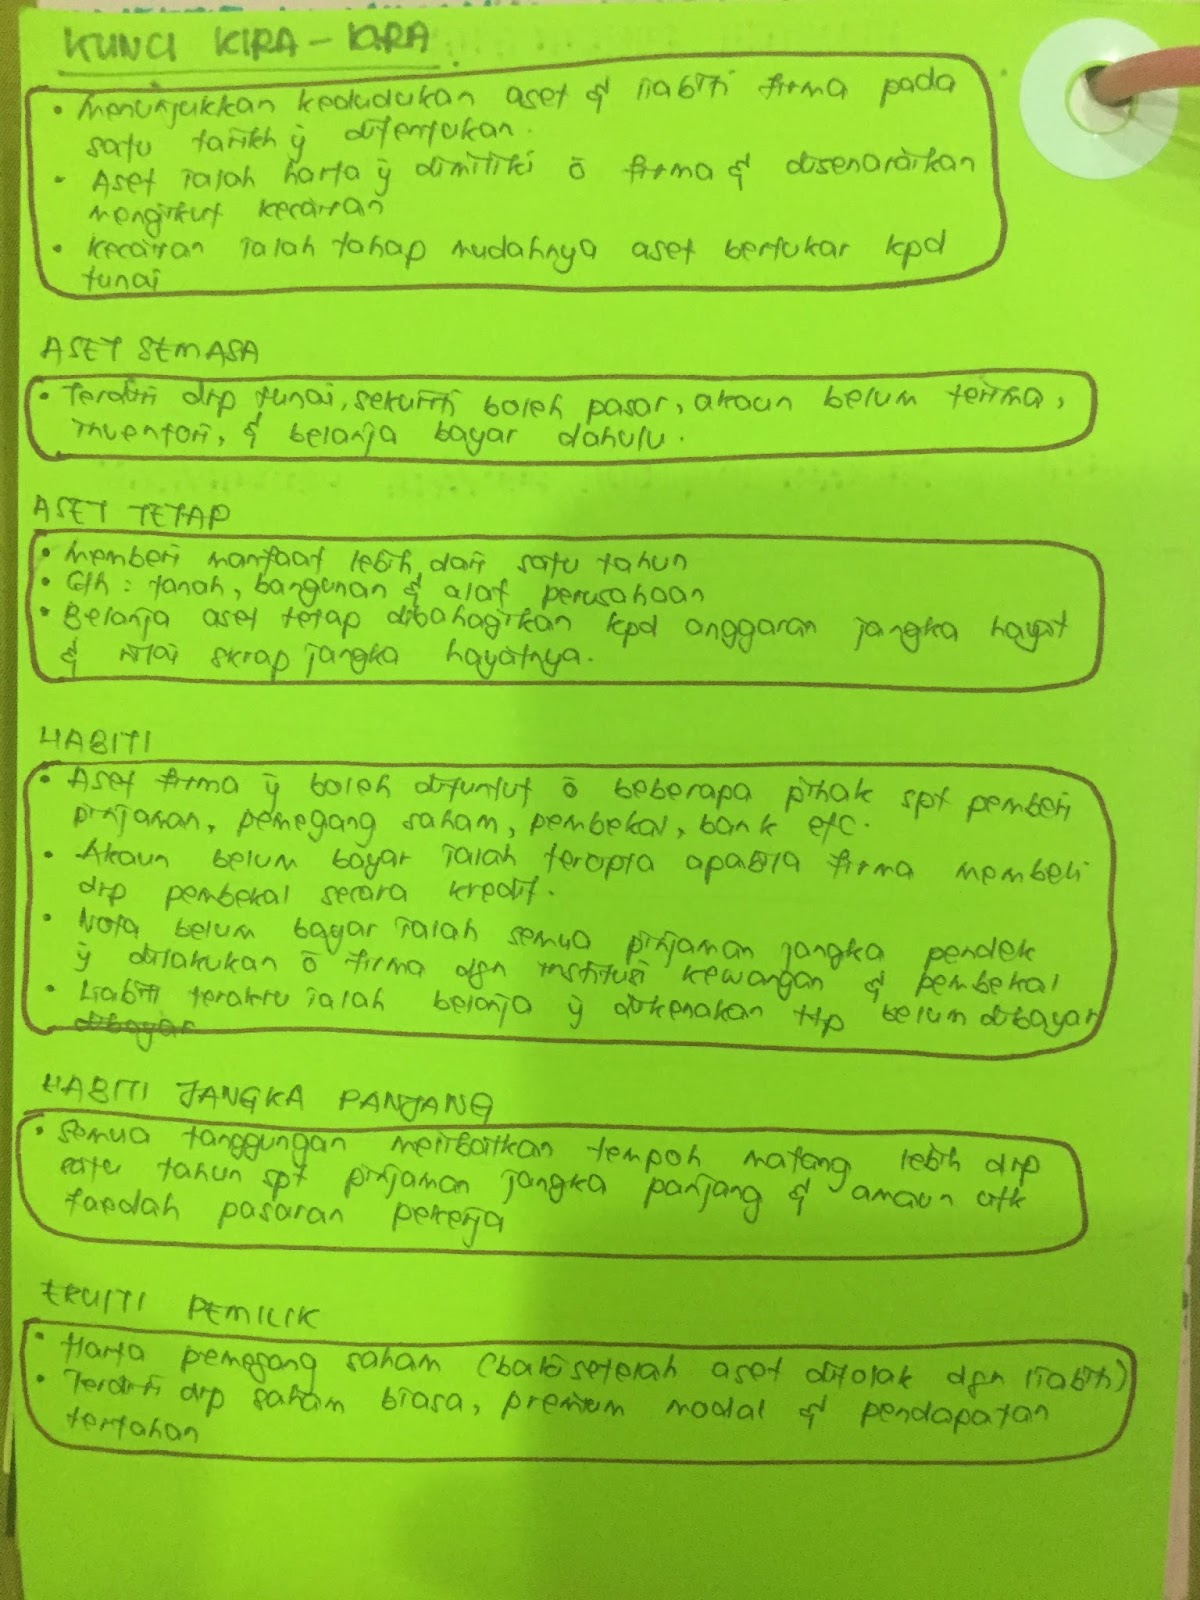 KUNCI KIRA-KIRA
• Menunjukkan kedudukan aset & liabiti firma pada
satu tarikh ÿ ditentukan.
• Aset ialah harta ÿ dimiliki ō firma & disenaraikan
mengikut kecairan
• Kecairan ialah tahap mudahnya aset bertukar kpd
tunai
ASET SEMASA
• Terdiri drp tunai, sekuriti boleh pasar, akaun belum terima,
inventori, & belanja bayar dahulu.
ASET TETAP
• Memberi manfaat lebih dari satu tahun
• Cth : tanah, bangunan & alat perusahaan
• Belanja aset tetap dibahagikan kpd anggaran jangka hayat
& nilai skrap jangka hayatnya.
LIABITI
• Aset firma ÿ boleh dituntut ō beberapa pihak spt pemberi
pinjaman, pemegang saham, pembekal, bank etc.
• Akaun belum bayar ialah tercipta apabila firma membeli
drp pembekal secara kredit.
• Nota belum bayar ialah semua pinjaman jangka pendek
ÿ dilakukan ō firma dgn institusi kewangan & pembekal
• Liabiti terakru ialah belanja ÿ dikenakan ttp belum dibayar
dibayar
LIABITI JANGKA PANJANG
• Semua tanggungan melibatkan tempoh matang lebih drp
satu tahun spt pinjaman jangka panjang & amaun utk
faedah pasaran pekerja
EKUITI PEMILIK
• Harta pemegang saham (baki setelah aset ditolak dgn liabiti)
• Terdiri drp saham biasa, premium modal & pendapatan
tertahan